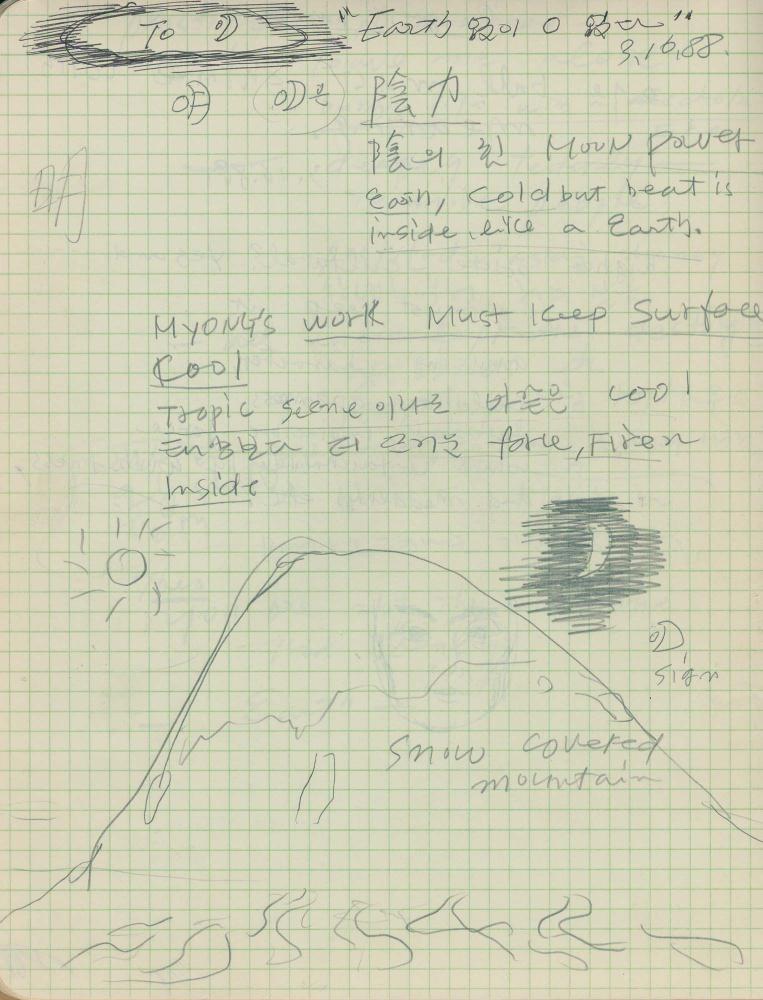 To
"Earth 없이 0 없다"
3,16,88.
은 陰力
明
陰의 힌 Moon power
Earth, cold but heat is
inside like a Earth.
MYONG's work Must Keep Surface
Cool
Tropic scene 이나로 바슬은 cool
태양보다 더 뜨거운 force, Fire
Inside
sign
Snow covered
mountain